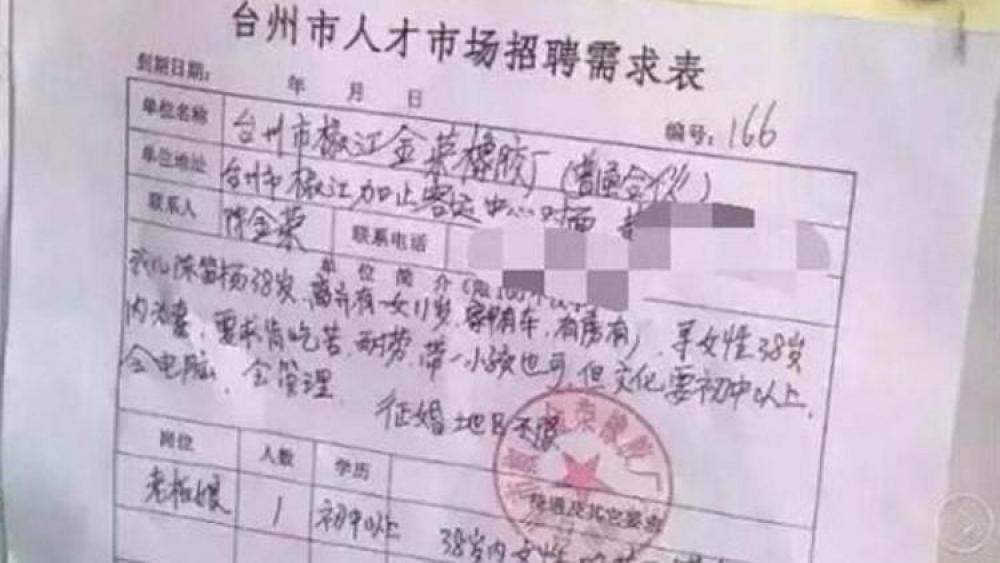 台州市人才市场招聘需求表
到期日期: 年 月 日
编号: 166
单位名称 台州市椒江金荣橡胶厂(普通合伙)
单位地址 台州市椒江加止客运中心对面
联系人 陈金荣 联系电话
单位简介
我儿陈富杨38岁,离异有一女11岁,家中有车,有房有),寻女性38岁
内为妻,要求肯吃苦,耐劳,带一小孩也可,但文化要初中以上,
会电脑,会管理. 征婚地区不限
岗位 人数 学历 待遇及其它要求
老板娘 1 初中以上 38岁内女性
荣橡胶厂